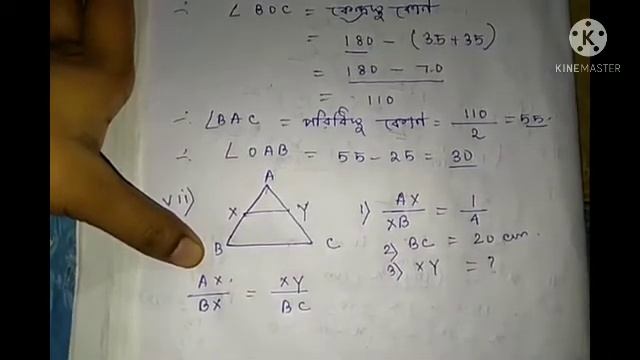 ∴ ∠BOC = কেন্দ্রস্থ কোণ
= 180 - (35+35)
= 180 - 70
= 110
∴ ∠BAC = পরিধিস্থ কোণ = 110/2 = 55.
∴ ∠OAB = 55 - 25 = 30
vii)
A
X Y
B C
1) AX/XB = 1/4
2) BC = 20 cm.
3) XY = ?
AX/BX = XY/BC
KINEMASTER